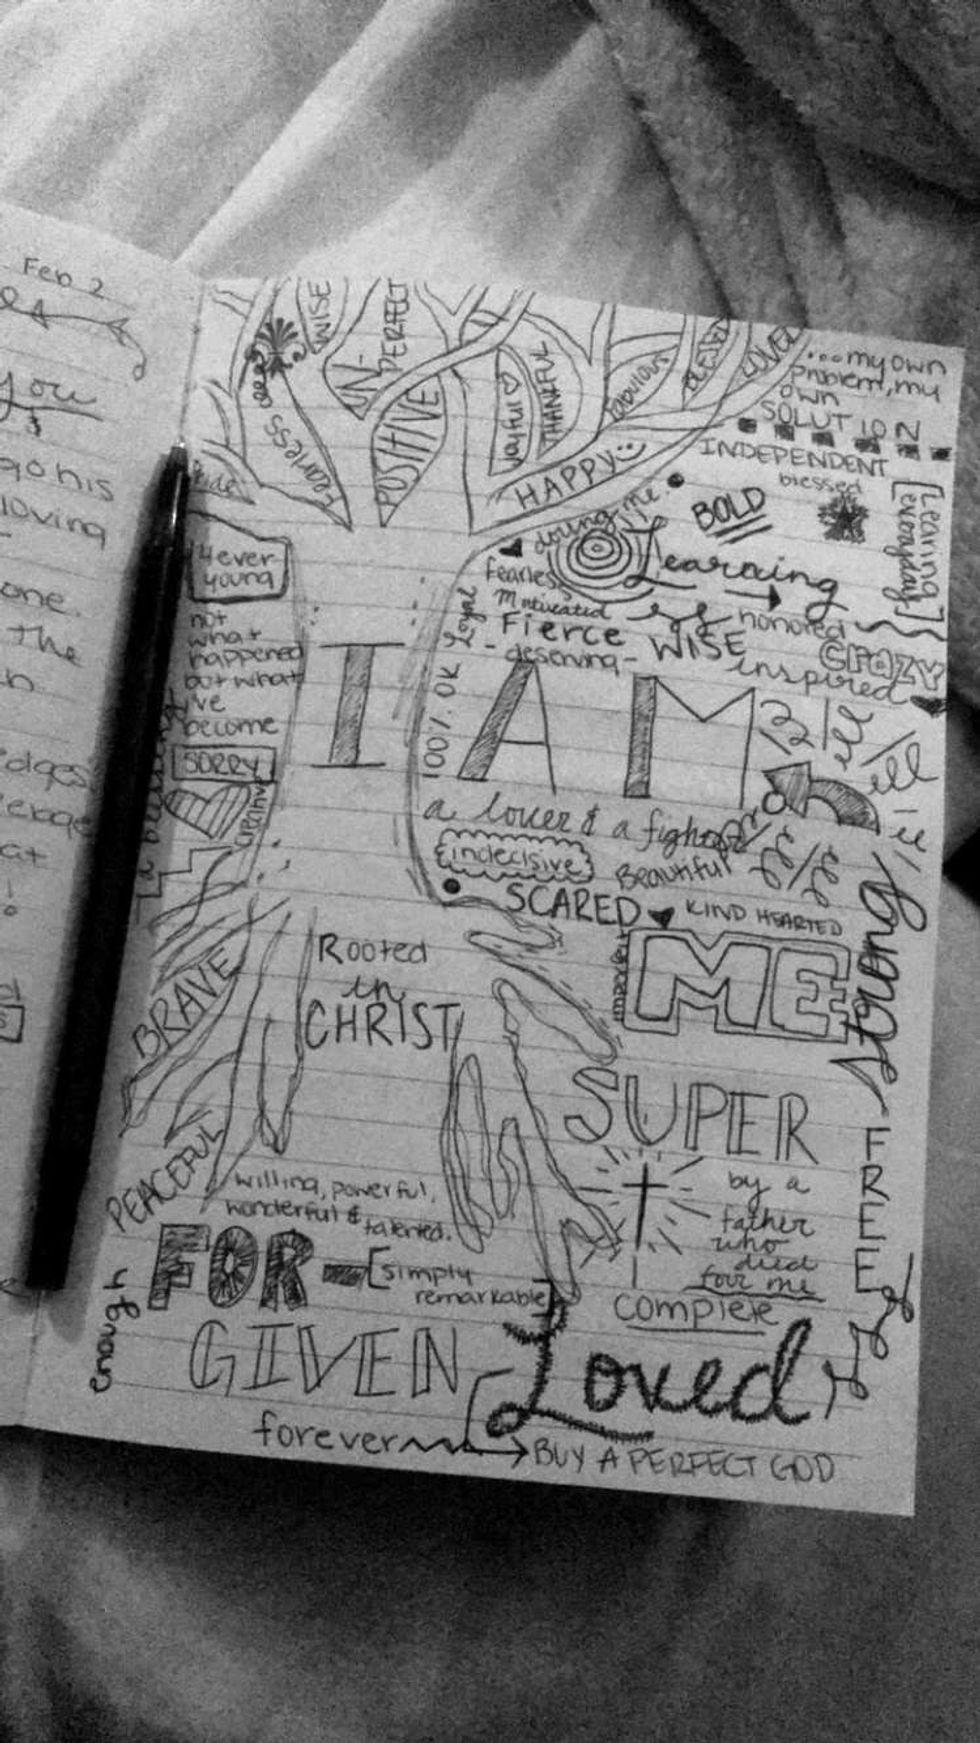 Feb 2
you
go his
loving
one.
the
edges
at
WISE
UN-
PERFECT
fearless
POSITIVE
joyful
THANKFUL
fabulous
LOVED
HAPPY
Pride
...my own
problem, my
own
SOLUTION
INDEPENDENT
blessed
[Learning
everyday]
BOLD
doing me.
Learning
4ever
young
fearless
Motivated
Fierce
- deserving -
Loyal
honored
WISE
inspired
CRAZY
100% OK
not
what
happened
but what
i've
become
SORRY
I AM
a lover & a fighter
indecisive
Beautiful
SCARED
KIND HEARTED
strong
BRAVE
Rooted
in
CHRIST
ME
SUPER
PEACEFUL
willing, powerful,
wonderful & talented.
by a
father
who
died
for me
FREE
FOR-
[simply
remarkable]
complete
enough
GIVEN
Loved
forever
BUY A PERFECT GOD